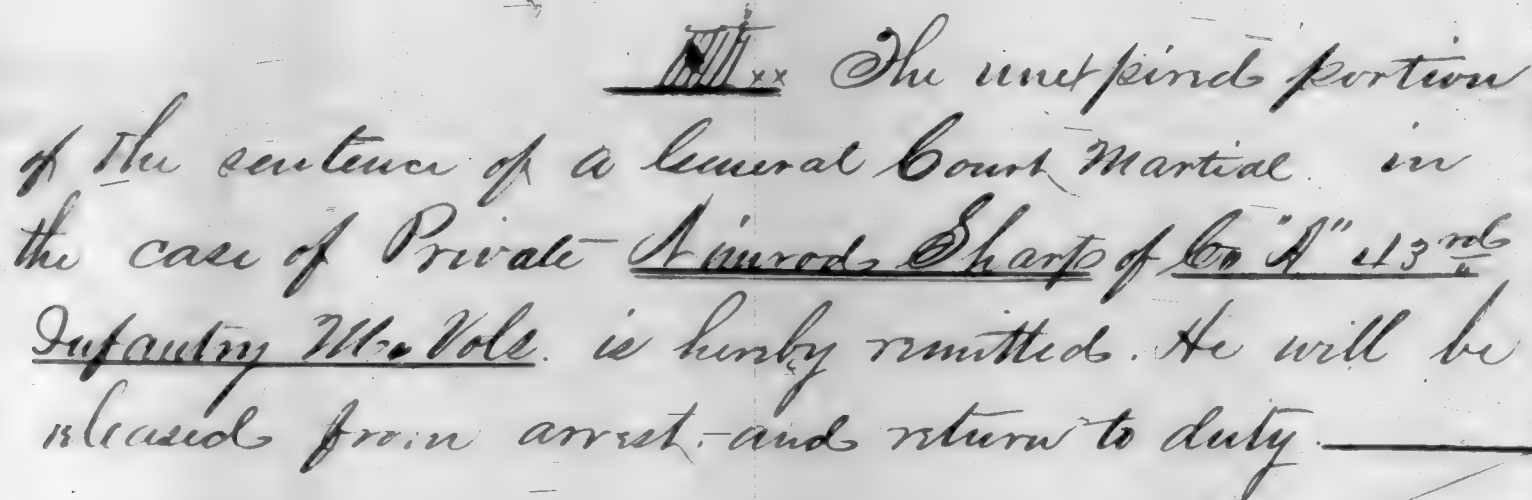 xx The unexpired portion
of the sentence of a General Court Martial in
the case of Private Nimrod Sharp of Co "A" 43rd
Infantry Mo. Vols. is hereby remitted. He will be
released from arrest. and return to duty